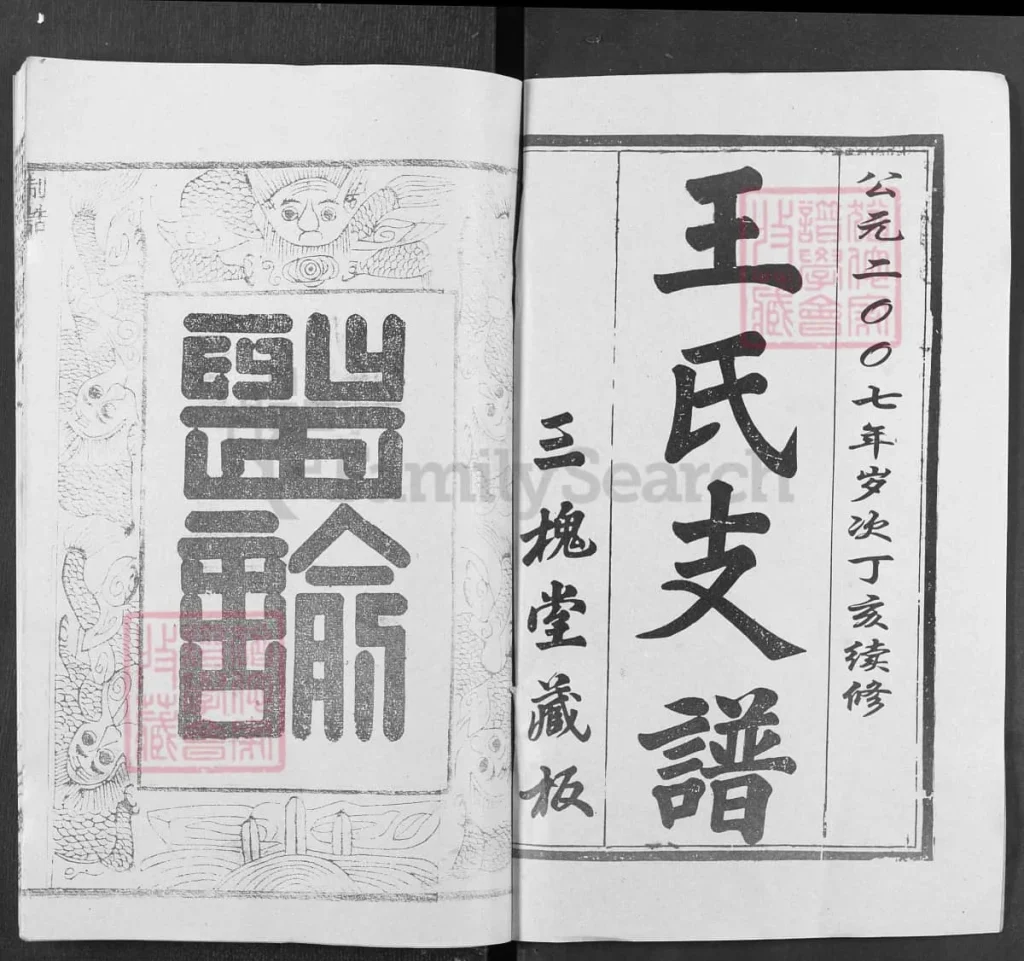 公元二〇〇七年岁次丁亥续修
王氏支譜
三槐堂藏板
聖諭
制誥
家
譜學會
收藏
FamilySearch